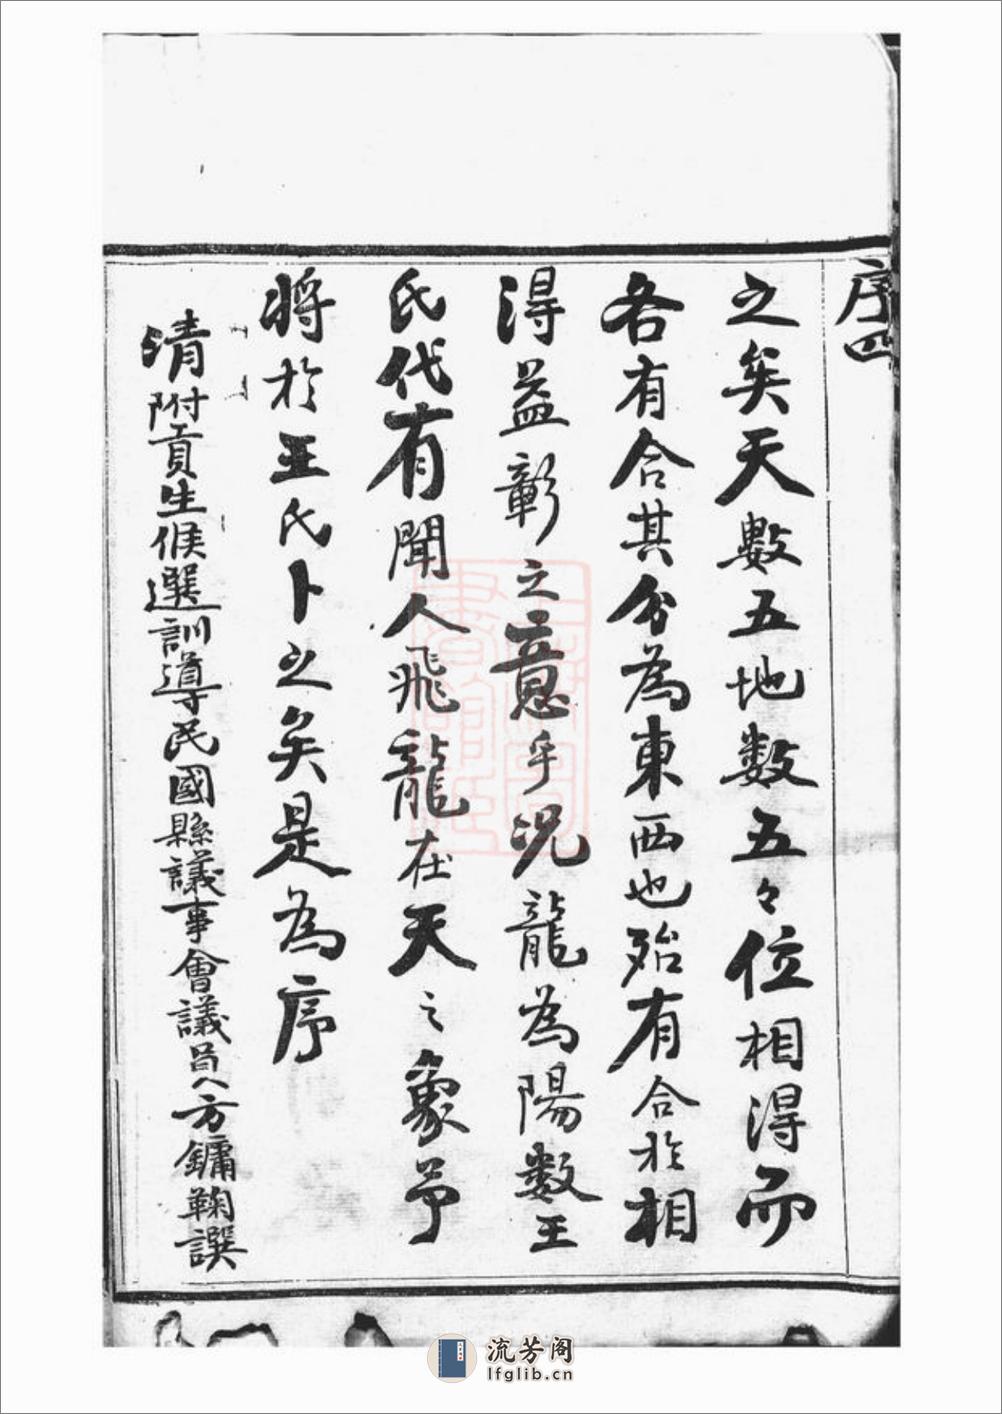 序四
之矣天數五地数五々位相得而
各有合其分為東西也殆有合於相
得益彰之意乎況龍為陽數王
氏代有聞人飛龍在天之象予
將於王氏卜之矣是為序
清附貢生候選訓導民國縣議事會議員方鏞鞠譔
流芳阁
lfglib.cn